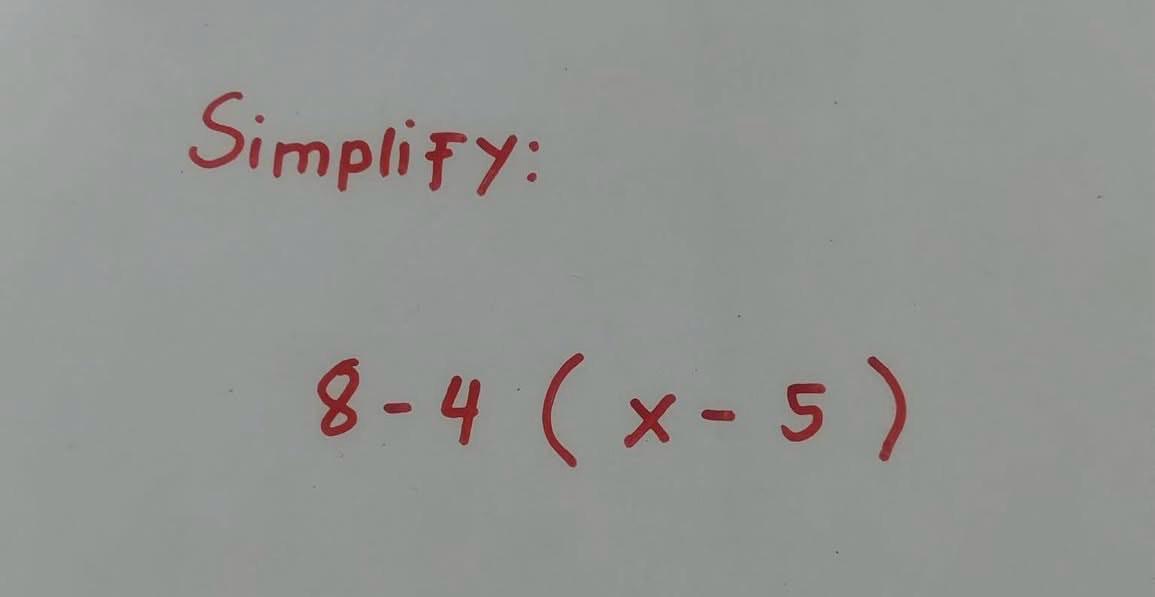 Simplify:
8-4 (x-5)